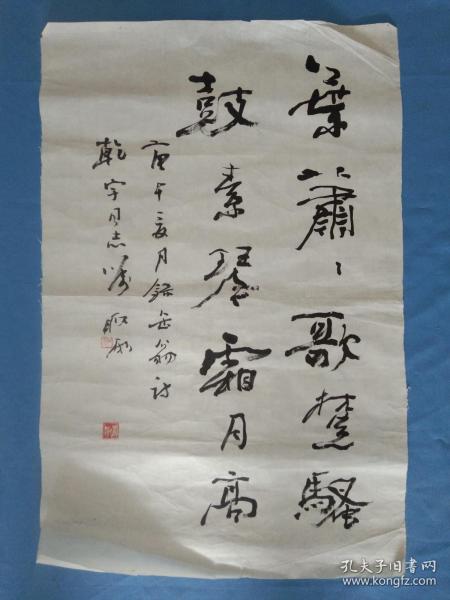 葉蕭々歌楚騷
鼓素琴霜月高
庚午夏月録缶翁詩
乾宇同志嘱
孔夫子旧书网
www.kongfz.com